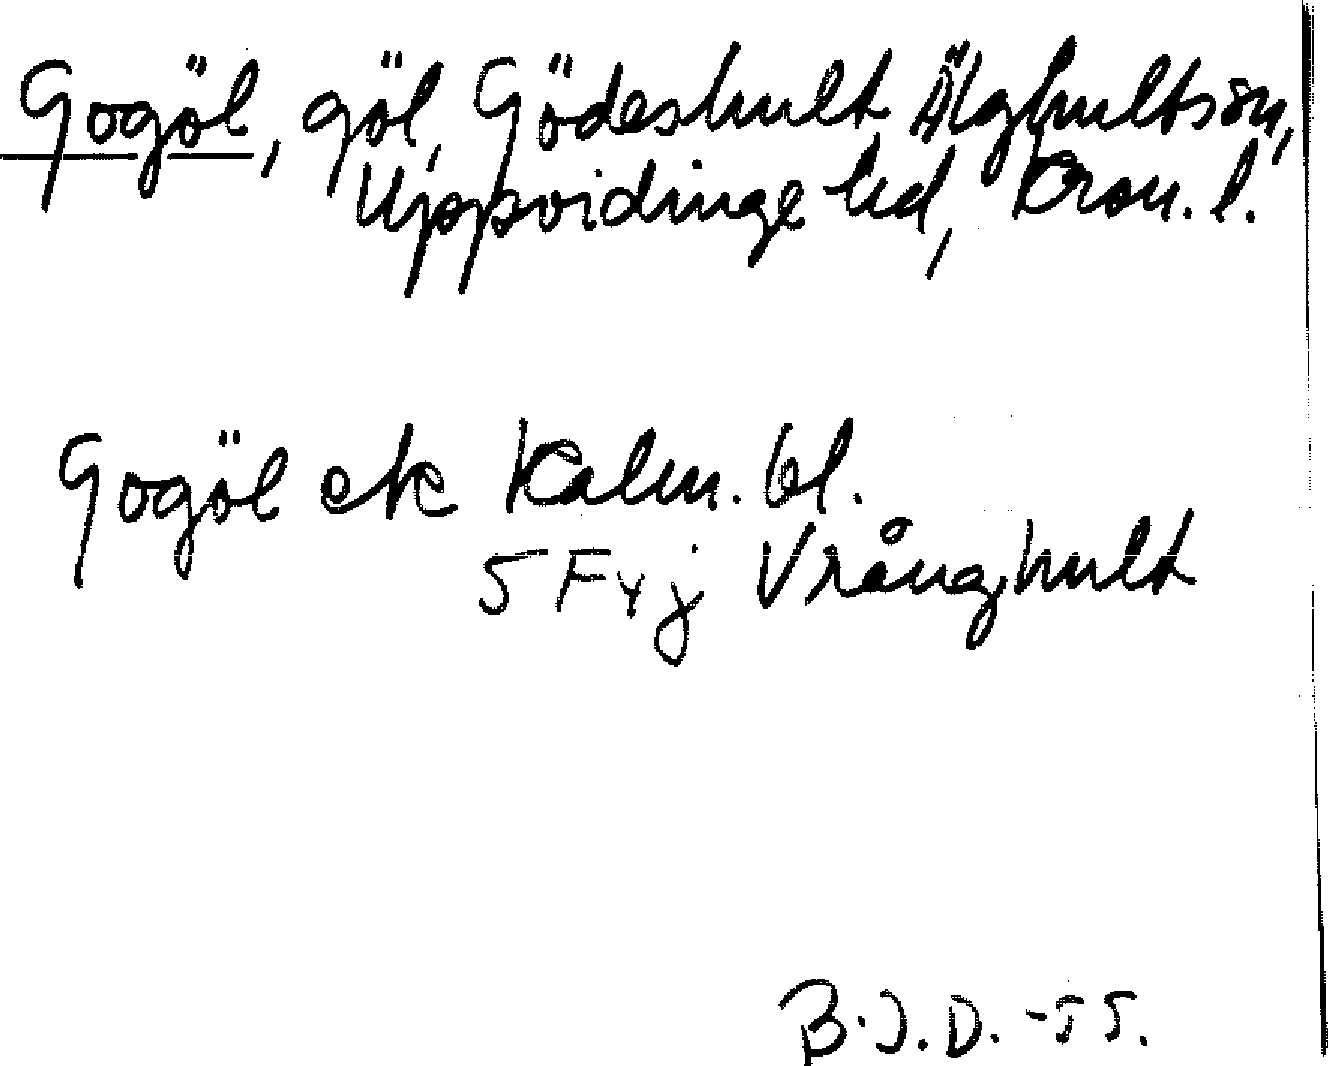 Gogöl, göl, Gödeshult, Älghults sn,
Uppvidinge hd, Kron. l.
Gogöl ek Kalm. bl.
5 F 4 j Vrånghult
B.J.D. -55.